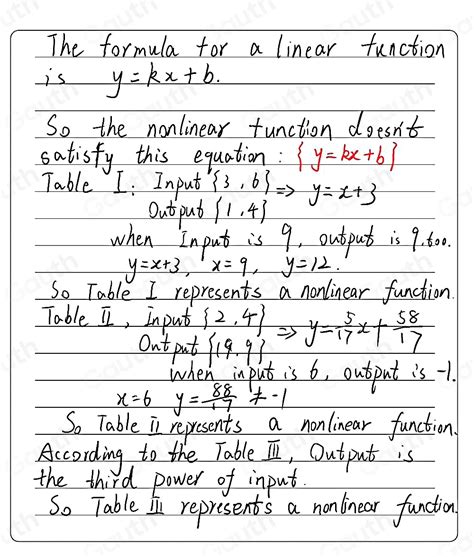 The formula for a linear function
is y=kx+b.
So the nonlinear function doesn't
satisfy this equation: {y=kx+b}
Table I: Input {3, 6} => y=x+3
Output {1, 4}
when Input is 9, output is 9, too.
y=x+3, x=9, y=12.
So Table I represents a nonlinear function.
Table II, Input {2, 4} => y=5/17x+58/17
Output {19, 9}
when input is 6, output is -1.
x=6 y=88/17 ≠ -1
So Table II represents a nonlinear function.
According to the Table III, Output is
the third power of input.
So Table III represents a nonlinear function.